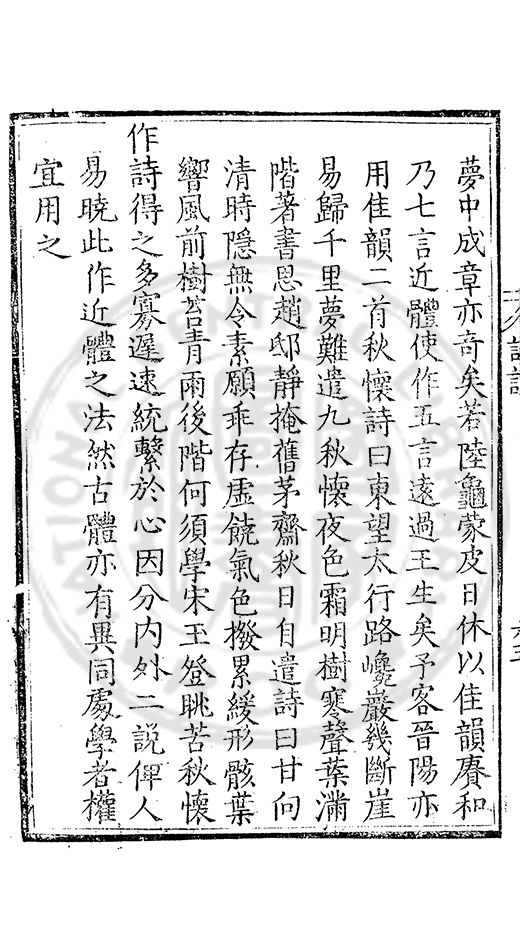 夢中成章亦奇矣若陸龜蒙皮日休以佳韻賡和
乃七言近體使作五言遠過王生矣予客晉陽亦
用佳韻二首秋懷詩曰東望太行路巉巖幾斷崖
易歸千里夢難遣九秋懷夜色霜明樹寒聲葉滿
階著書思趙邸靜掩舊茅齋秋日自遣詩曰甘向
清時隱無令素願乖存虛饒氣色撥累緩形骸葉
響風前樹苔青雨後階何須學宋玉登眺苦秋懷
作詩得之多寡遲速統繫於心因分內外二說俾人
易曉此作近體之法然古體亦有異同處學者權
宜用之